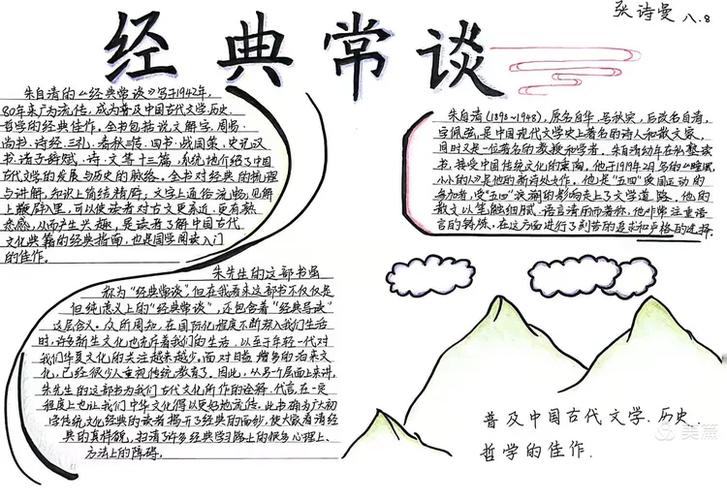 经典常谈
张诗曼 八.8
朱自清的《经典常谈》写于1942年,
80年来广为流传,成为普及中国古代文学.历史.
哲学的经典佳作。全书包括说文解字.周易.
尚书.诗经.三礼.春秋三传.四书.战国策.史记汉
书.诸子.辞赋.诗.文等十三篇,系统地介绍了中国
古代文学的发展与历史的脉络。全书对经典的梳理
与讲解,知识上简洁精辟;文字上通俗流畅;见解
上鞭辟入里,可以使读者对古文更亲近.更有熟
悉感,从而产生兴趣,是读者了解中国古代
文化典籍的经典指南,也是同学阅读入门
的佳作。
朱自清(1898~1948),原名自华.号秋实,后改名自清,
字佩弦.是中国现代文学史上著名的诗人和散文家,
同时又是一位著名的教授和学者。朱自清幼年在私塾读
书,接受中国传统文化的熏陶。他于1919年2月写的《睡吧,
小小的人》是他的新诗处女作。他是"五四"爱国运动的
参加者,受"五四"浪潮的影响走上了文学道路。他的
散文以笔触细腻.语言清丽而著称,他非常注重语
言的锤炼,在这方面进行了刻苦的追求和严格的选择.
朱先生的这部书虽
称为"经典常谈",但在我看来这部书不仅仅是
但纯意义上的"经典常谈",还包含着"经典导读"
这层含义。众所周知,在国际化程度不断深入我们生活
时,许多新生文化也充斥着我们的生活,以至于年轻一代对
我们华夏文化的关注越来越少。面对日益增多的泊来文
化,已经很少人重视传统教育了。因此,从另个层面上来讲,
朱先生的这部书为我们古代文化所作的诠释.代言,在一定
程度上也让我们中华文化得以更好地流传。此书确为广大初
学传统文化经典的读者揭开了经典的面纱,使大家看清经
典的真样貌,扫清了许多经典学习路上的很多心理上、
方法上的障碍。
普及中国古代文学.历史.
哲学的佳作.
美篇